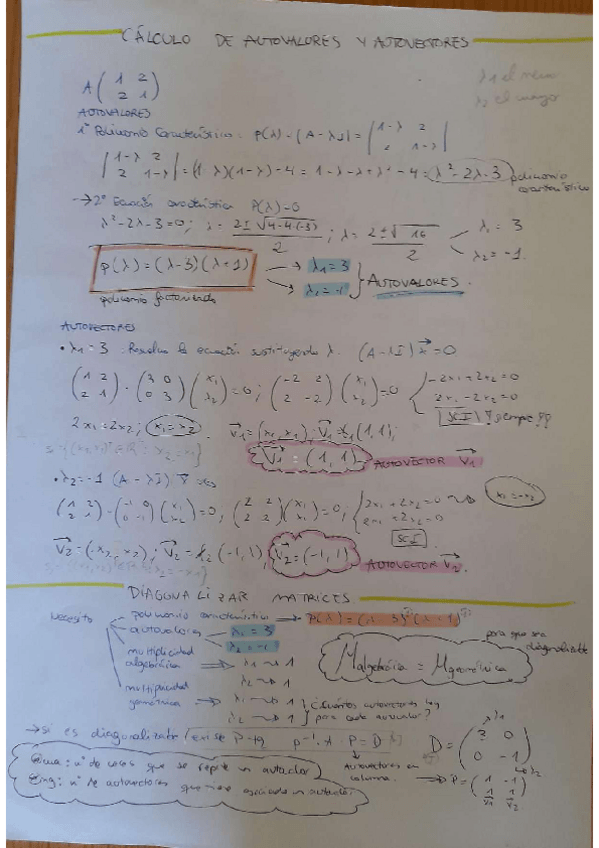 CÁLCULO DE AUTOVALORES Y AUTOVECTORES
λ1 el menor
λ2 el mayor
A (1 2
2 1)
AUTOVALORES
1º Polinomio Característico: P(λ) = |A-λJ| = |1-λ 2
2 1-λ|
|1-λ 2
2 1-λ| = (1-λ)(1-λ)-4 = 1-λ-λ+λ²-4 = λ²-2λ-3 polinomio
característico
→ 2º Ecuación característica P(λ)=0
λ²-2λ-3=0; λ = 2±√4-4·(-3) / 2 ; λ = 2±√16 / 2
λ1 = 3
λ2 = -1
p(λ) = (λ-3)(λ+1) → λ1=3
→ λ2=-1 } AUTOVALORES.
polinomio factorizado
AUTOVECTORES
• λ1 = 3 Resolver la ecuación sustituyendo λ. (A-λI) x = 0
(1 2
2 1) - (3 0
0 3) (x1
x2) = 0; (-2 2
2 -2) (x1
x2) = 0 { -2x1+2x2=0
2x1-2x2=0
SCI ! siempre !!
2x1=2x2; x1=x2. V1=(x1,x1); V1=x1(1,1);
V1 = (1,1) AUTOVECTOR V1
• λ2=-1 (A-λI) V=0
(1 2
2 1) - (-1 0
0 -1) (x1
x2) = 0; (2 2
2 2) (x1
x2) = 0; { 2x1+2x2=0 → x1=-x2
2x1+2x2=0
SCI
V2=(-x2,x2); V2=x2(-1,1) V2=(-1,1)
AUTOVECTOR V2.
DIAGONALIZAR MATRICES
Necesito polinomio característico → P(λ)=(λ-3)¹(λ+1)¹
autovalores λ1=3
λ2=-1
para que sea
diagonalizable
multiplicidad
algebráica ⇒ λ1 → 1
λ2 → 1
Malgebráica = Mgeométrica
multiplicidad
geométrica ⇒ λ1 → 1
λ2 → 1 } ¿Cuántos autovectores hay
para cada autovalor?
→ si es diagonalizable existe P tq P⁻¹·A·P=D
D = (3 0
0 -1)
Autovectores en
columna. ⇒ P = (1 -1
1 1)
V1 V2
ma: nº de veces que se repite un autovalor
mg: nº de autovectores que tiene asociado un autovalor